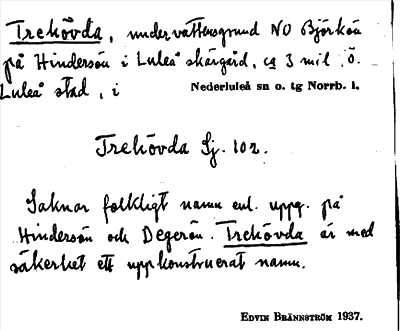 Trehövda, undervattensgrund NO Björkön
på Hindersön i Luleå skärgård, ca 3 mil ö.
Luleå stad, i Nederluleå sn o. tg Norrb. l.
Trehövda Sj. 102.
Saknar folkligt namn enl. uppg. på
Hindersön och Degerön. Trehövda är med
säkerhet ett uppkonstruerat namn.
EDVIN BRÄNNSTRÖM 1937.